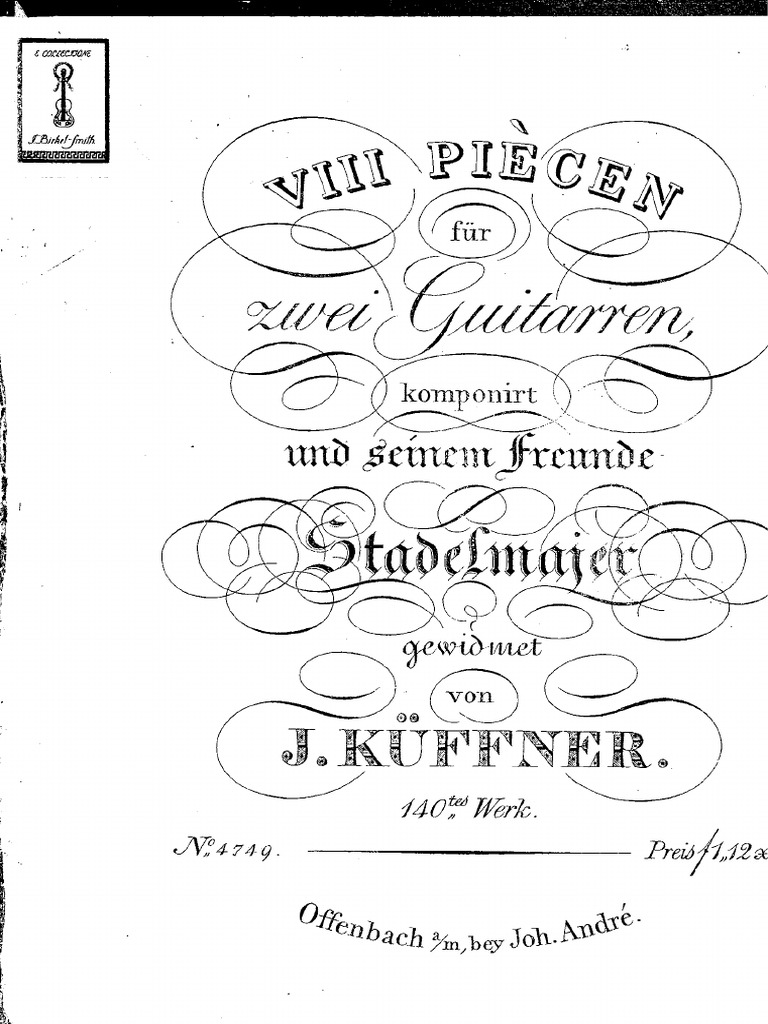 E COLLECTIONE
J. Birkel-Smith
VIII PIÈCEN
für
zwei Guitarren,
komponirt
und seinem Freunde
Stadelmajer
gewidmet
von
J. KÜFFNER.
140tes Werk.
No. 4749.
Preis f 1,,12 x
Offenbach a/m, bey Joh. André.